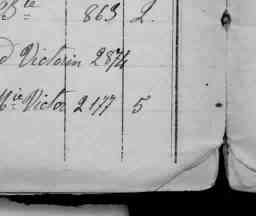 Bte 863 2.
d Victorin 2874
Mie Victor 2177 5